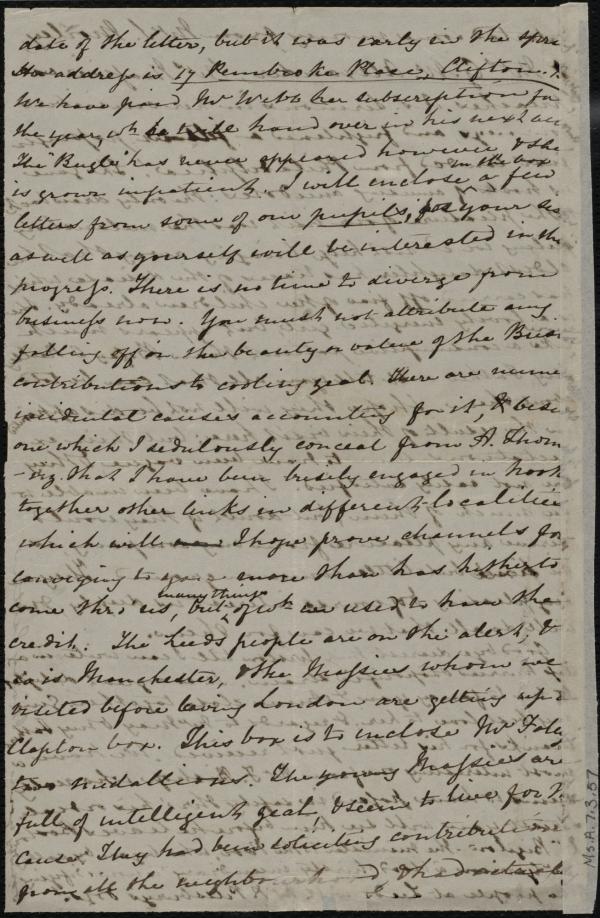 date of the letter, but it was early in the spri
Her address is 17 Pembroke Place, Clifton.
We have paid Mr Webb her subscription for
the year, wh he will hand over in his next acc
The "Bugle" has never appeared however & she
is grown impatient. I will enclose in the box a few
letters from some of our pupils, for your sis
as well as yourself will be interested in the
progress. There is no time to diverge from
business now. You must not attribute any
falling off in the beauty or value of the Bris
contributions to cooling zeal. there are nume
incidental causes accounting for it, & besi
one which I sedulously conceal from A. Thom
- viz. that I have been busily engaged in hook
together other links in different localities
which will I hope prove channels for
conveying to you more than has hitherto
come thro' us, but many things of wh we used to have the
credit. The Leeds people are on the alert, &
so is Manchester, & the Massies whom we
visited before leaving London are getting up a
Clapton box. This box is to inclose Mr Foley
two medallions. The young Massies are
full of intelligent zeal, & seem to live for the
cause. They had been soliciting contributions
from all the neighb
Ms.A.7.3.57